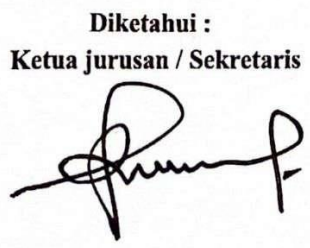 Diketahui :
Ketua jurusan / Sekretaris